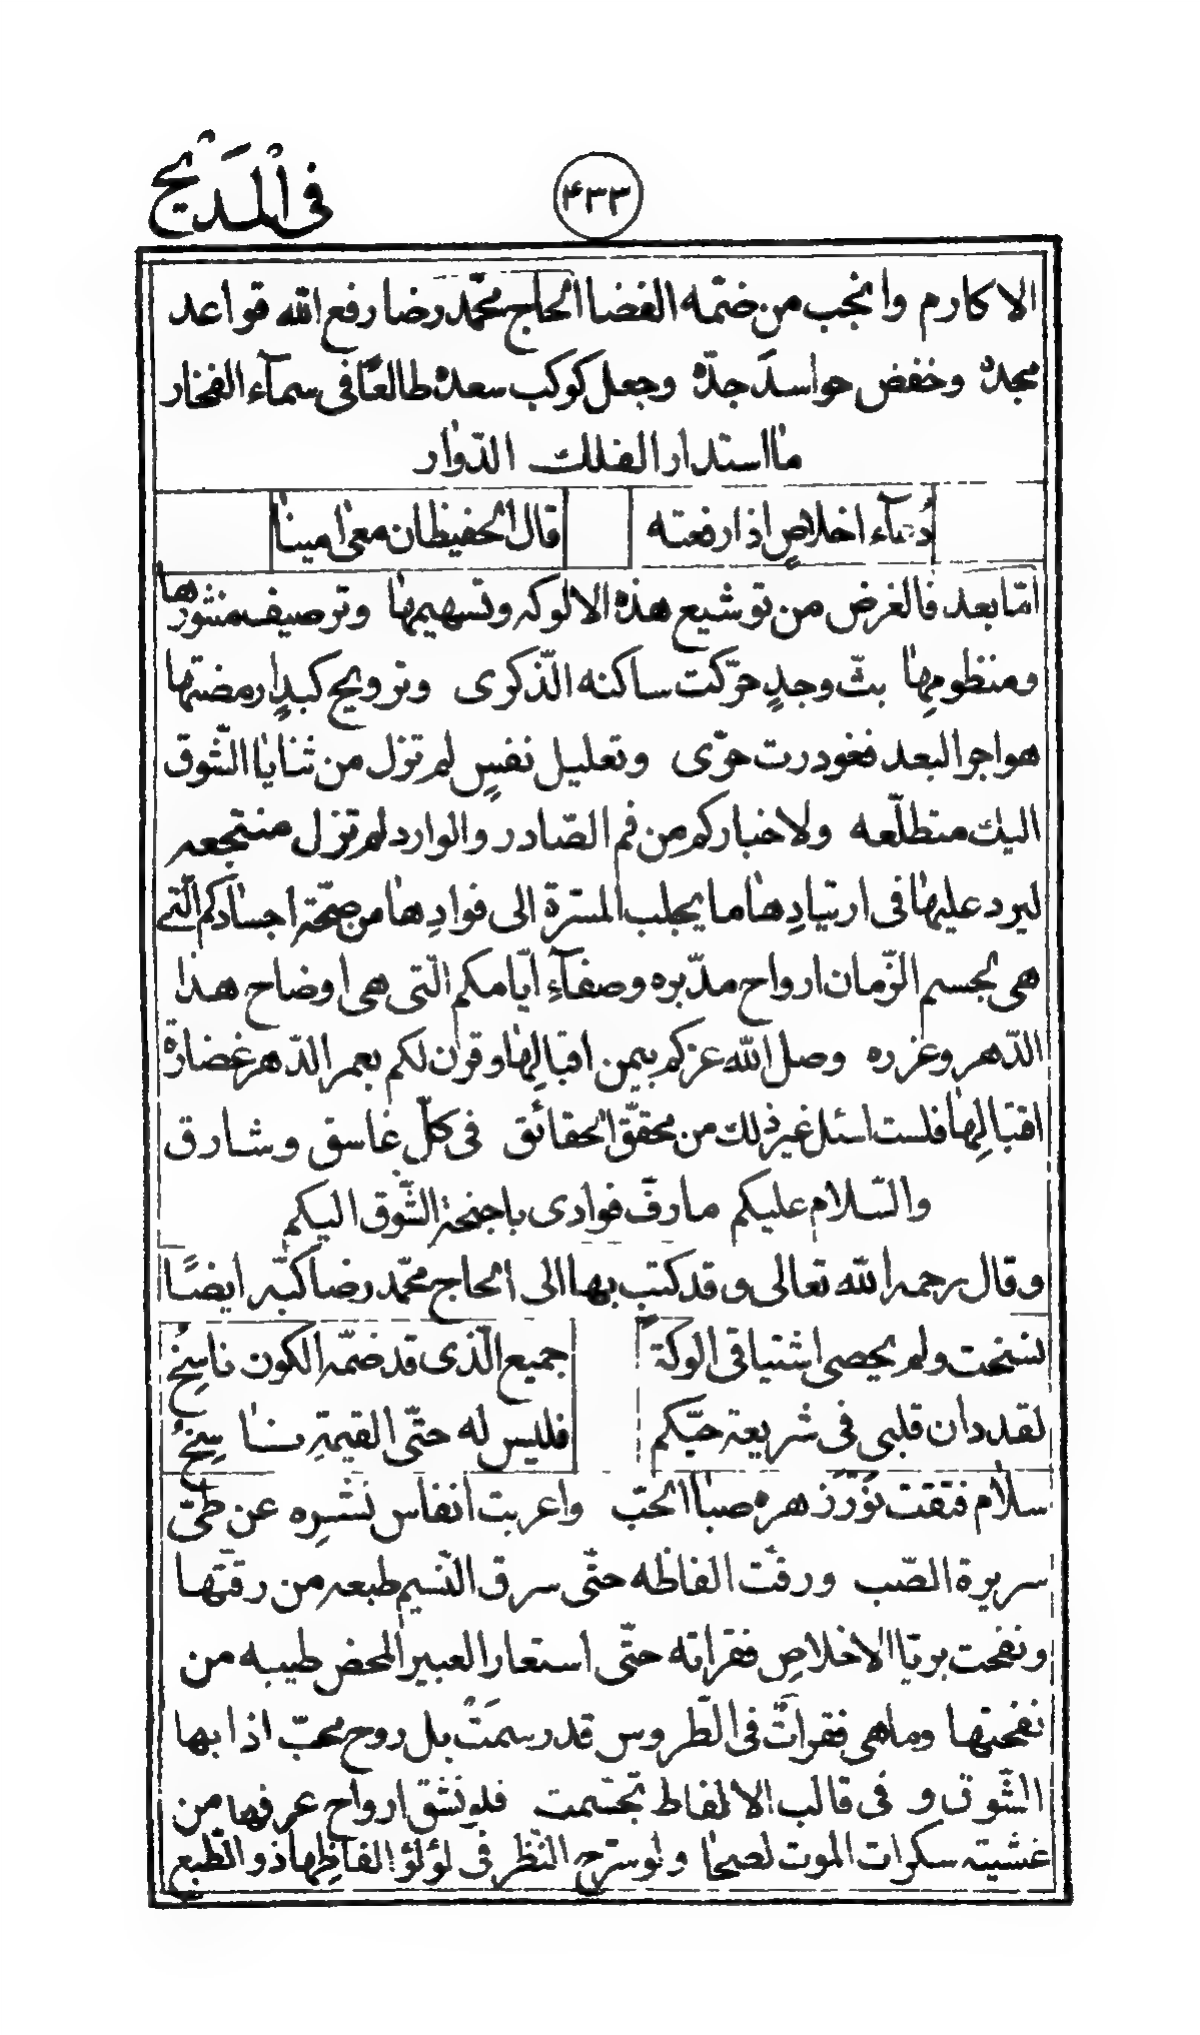 فى المَديح
۴۳۳
الاكارم وانجب من ضتمه الفضا الحاج محمّد رضا رفع الله قواعد
مجده وخفض حواسدَ جدّه وجعل كوكب سعده طالعًا فى سمآء الفخار
ما استدار الفلك الدّوار
دُعآء اخلاصٍ اذا رفعته قال الحفيظان معى امينا
امّا بعد فالغرض من توشيع هذه الالوكه وتسهيمها وترصيف منثورها
ومنظومِها بثّ وجدٍ حرّكت ساكنه الذّكرى وترويح كبدٍ ارمضتها
هواجر البعد فغودرت حرّى وتعليل نفسٍ لم تزل من ثنايا الشّوق
اليك متطلّعه ولاخباركم من فم الصّادر والوارد لم تزل منتجعه
ليرد عليها فى ارتيادِها ما يجلب المسّرة الى فوادِها من صحّة اجسادكم الّتى
هى لجسم الزّمان ارواح مدّبره وصفآءِ ايّامكم الّتى هى اوضاح هذا
الدّهر وغرره وصل الله عزكم بيمن اقبالِها وقرن لكم بعمر الدّهر غضارة
اقبالِها فلست اسئل غير ذلك من محقّق الحقائق فى كلّ غاسق وشارق
والسّلام عليكم مارفّ فوادى باجنحة الشّوق اليكم
وقال رحمه الله تعالى وقد كتب بها الى الحاج محمّد رضا كبّه ايضًا
نسخت ولم يحصى اشتياقى الوكةً جميع الّذى قد ضمّه الكون ناسِخُ
لقد دان قلبى فى شريعة حبّكم فليس له حتّى القيمةِ ناسِخُ
سلام فتقت نَوْرَ زهره صبا الحبّ واعربت انفاس نَشرِه عن طىّ
سريرة الصّب ورقّت الفاظه حتّى سرق النّسيم طبعه من رقّتها
ونفحت بريّا الاخلاصِ فقراته حتّى استعار العبير المحض طيبه من
نفحتها وماهى فقراتٌ فى الطّروس قد رسمَتْ بل روح محبّ اذابها
الشّوق و فى قالب الالفاظ تجسّمت فلو نشق ارواح عرفها من
غشيته سكرات الموت لصحا ولو سرّح النّظر فى لؤلؤ الفاظِها ذو الطّبع